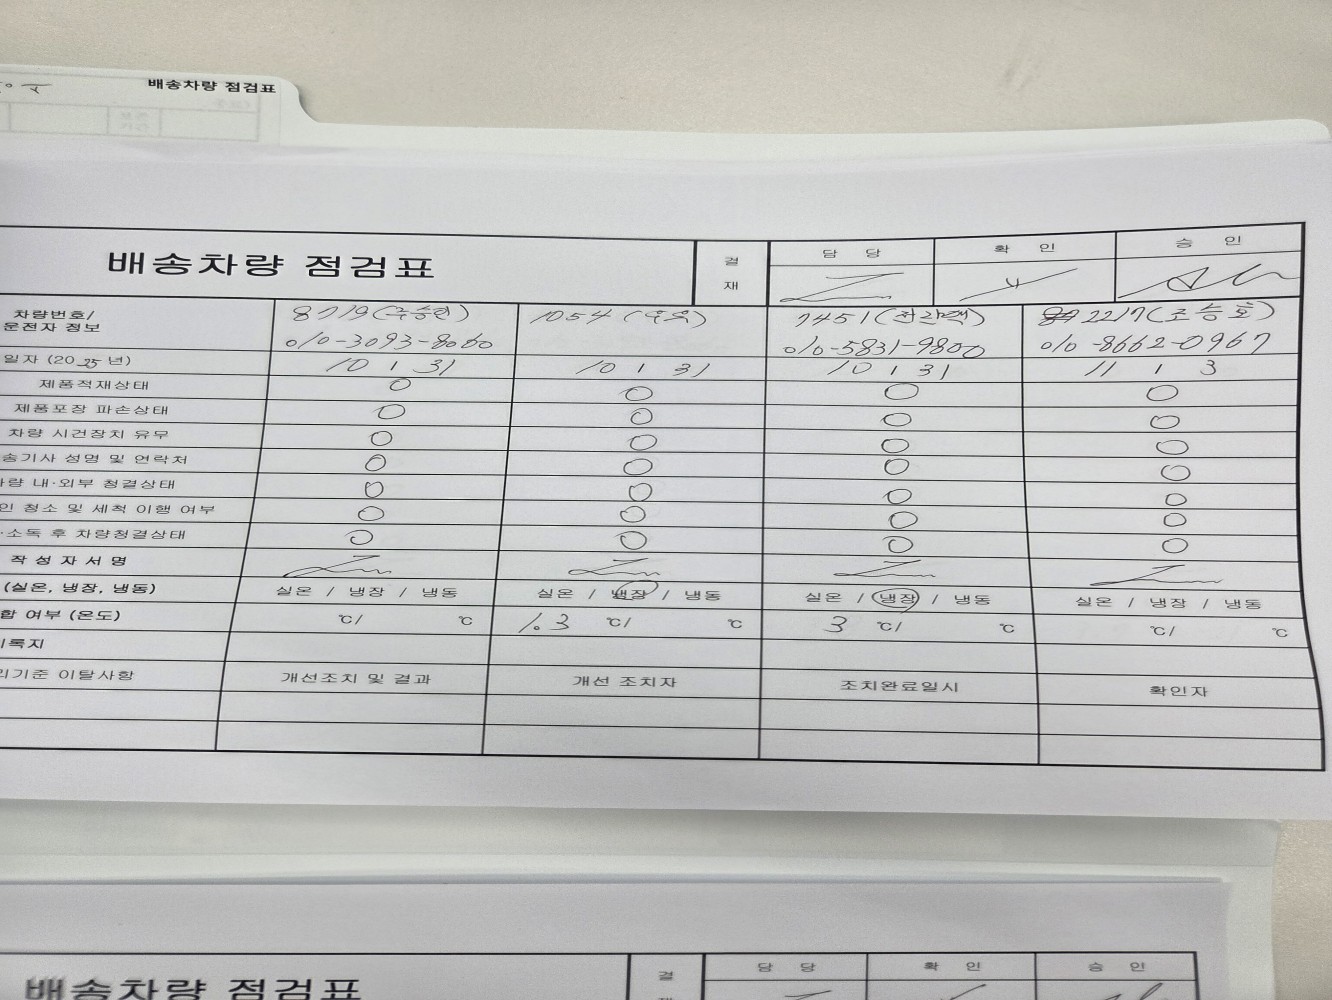 배송차량 점검표
배송차량 점검표
결재
담 당
확 인
승 인
차량번호/
운전자 정보
8719(구승현)
010-3093-8060
1054(우영)
7451(전관택)
010-5831-9800
2217(조승호)
010-8662-0967
일자 (2025년)
10 1 31
10 1 31
10 1 31
11 1 3
제품적재상태 ○ ○ ○ ○
제품포장 파손상태 ○ ○ ○ ○
차량 시건장치 유무 ○ ○ ○ ○
송기사 성명 및 연락처 ○ ○ ○ ○
량 내·외부 청결상태 ○ ○ ○ ○
인 청소 및 세척 이행 여부 ○ ○ ○ ○
·소독 후 차량청결상태 ○ ○ ○ ○
작 성 자 서 명
(실온, 냉장, 냉동) 실온 / 냉장 / 냉동 실온 / 냉장 / 냉동 실온 / 냉장 / 냉동 실온 / 냉장 / 냉동
합 여부 (온도) ℃/ ℃ 1.3 ℃/ ℃ 3 ℃/ ℃ ℃/ ℃
기록지
리기준 이탈사항 개선조치 및 결과 개선 조치자 조치완료일시 확인자
배송차량 점검표
결
담 당
확 인
승 인